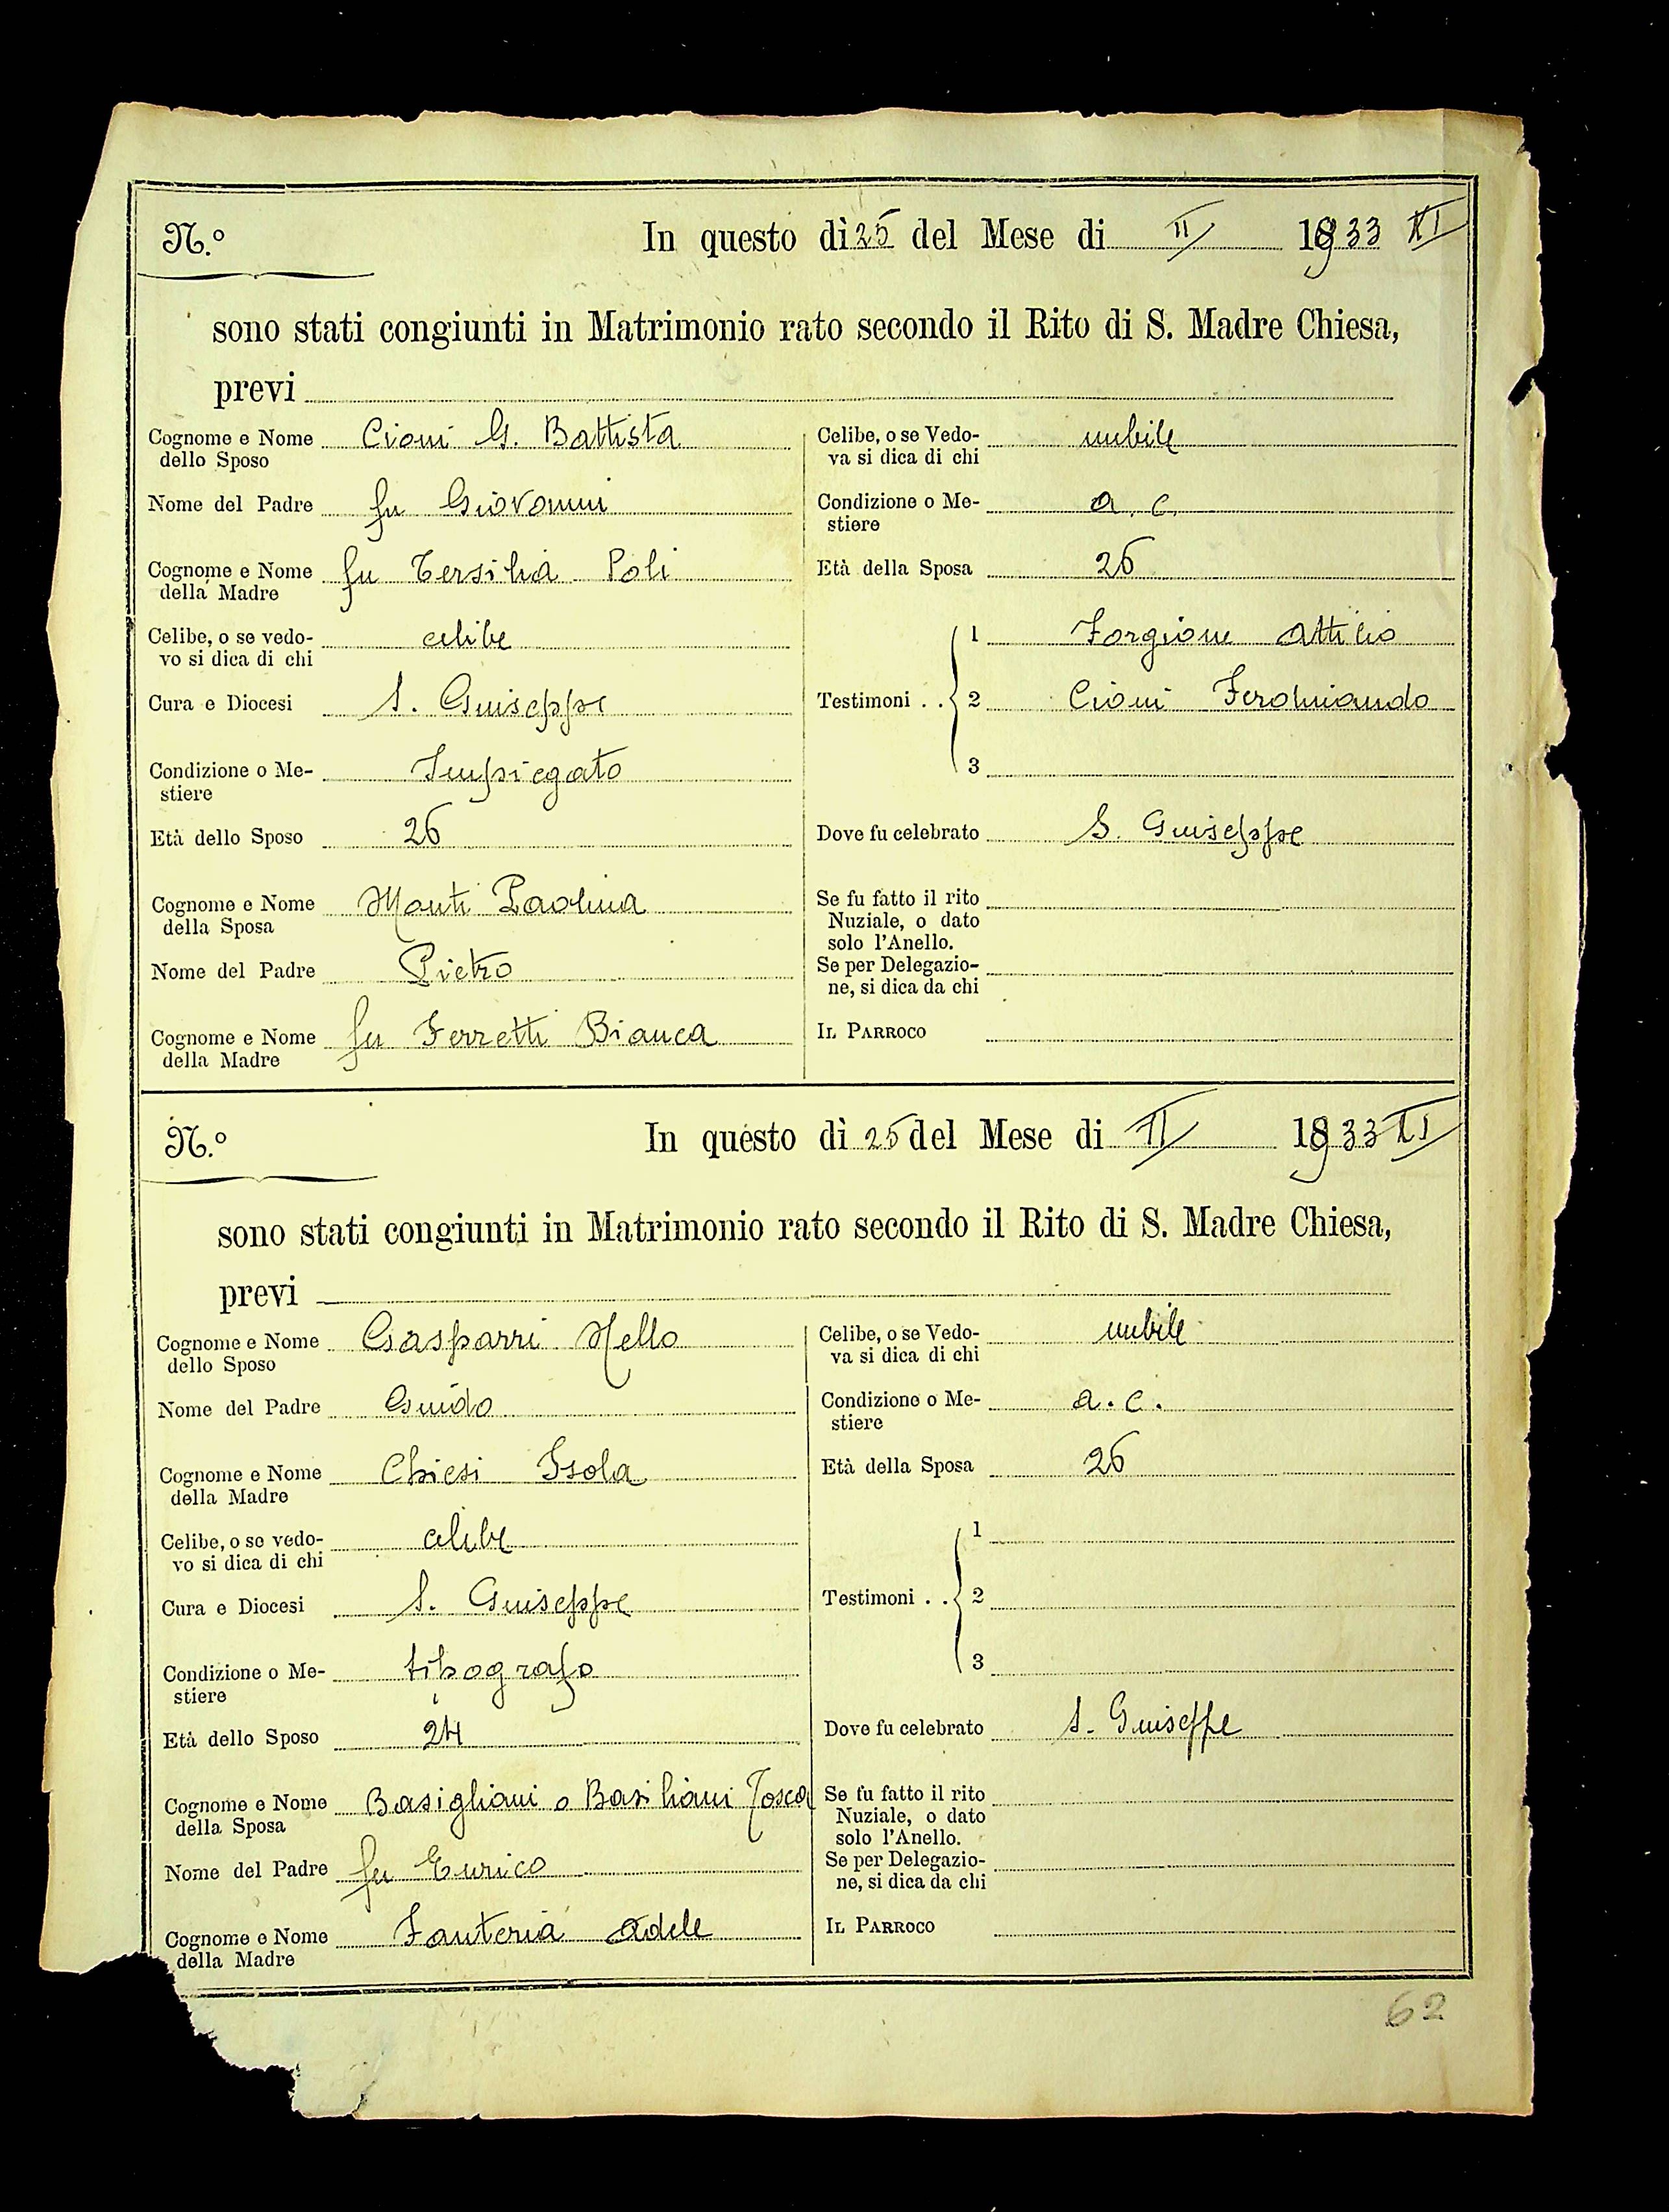 N.º In questo dì 25 del Mese di II 1933 XI
sono stati congiunti in Matrimonio rato secondo il Rito di S. Madre Chiesa,
previ
Cognome e Nome Cioni G. Battista
dello Sposo
Nome del Padre fu Giovanni
Cognome e Nome fu Tersilia Poli
della Madre
Celibe, o se vedo- celibe
vo si dica di chi
Cura e Diocesi S. Giuseppe
Condizione o Me- Impiegato
stiere
Età dello Sposo 26
Cognome e Nome Monti Paolina
della Sposa
Nome del Padre Pietro
Cognome e Nome fu Ferretti Bianca
della Madre
Celibe, o se Vedo- nubile
va si dica di chi
Condizione o Me- a. c.
stiere
Età della Sposa 26
Testimoni . . 1 Forgione Attilio
2 Cioni Ferdinando
3
Dove fu celebrato S. Giuseppe
Se fu fatto il rito
Nuziale, o dato
solo l'Anello.
Se per Delegazio-
ne, si dica da chi
IL PARROCO
N.º In questo dì 25 del Mese di II 1933 XI
sono stati congiunti in Matrimonio rato secondo il Rito di S. Madre Chiesa,
previ
Cognome e Nome Gasparri Nello
dello Sposo
Nome del Padre Guido
Cognome e Nome Chiesi Isola
della Madre
Celibe, o se vedo- celibe
vo si dica di chi
Cura e Diocesi S. Giuseppe
Condizione o Me- tipografo
stiere
Età dello Sposo 24
Cognome e Nome Basigliani o Basiliani Tosca
della Sposa
Nome del Padre fu Enrico
Cognome e Nome Fanteria Adele
della Madre
Celibe, o se Vedo- nubile
va si dica di chi
Condizione o Me- a. c.
stiere
Età della Sposa 26
Testimoni . . 1
2
3
Dove fu celebrato S. Giuseppe
Se fu fatto il rito
Nuziale, o dato
solo l'Anello.
Se per Delegazio-
ne, si dica da chi
IL PARROCO
62